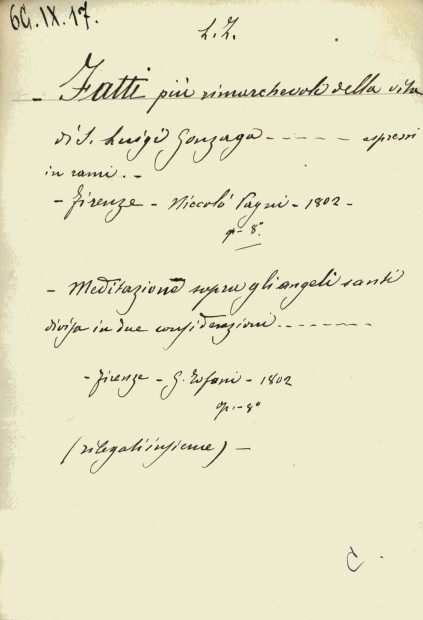 6G.IX.17.
L.Z.
- Fatti più rimarchevoli della vita
di S. Luigi Gonzaga - - - - - espressi
in rami. -
- Firenze - Niccolò Pagni - 1802 -
8°
- Meditazione sopra gli angeli santi
divisa in due considerazioni - - - - - - -
- Firenze - G. Tofani - 1802
8°
(rilegati insieme) -
C.